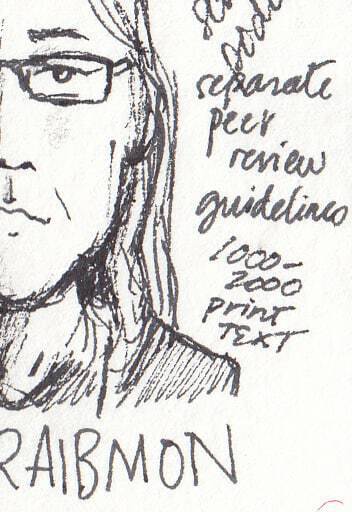 separate
peer
review
guidelines
1000-
2000
print
TEXT
RAIBMON